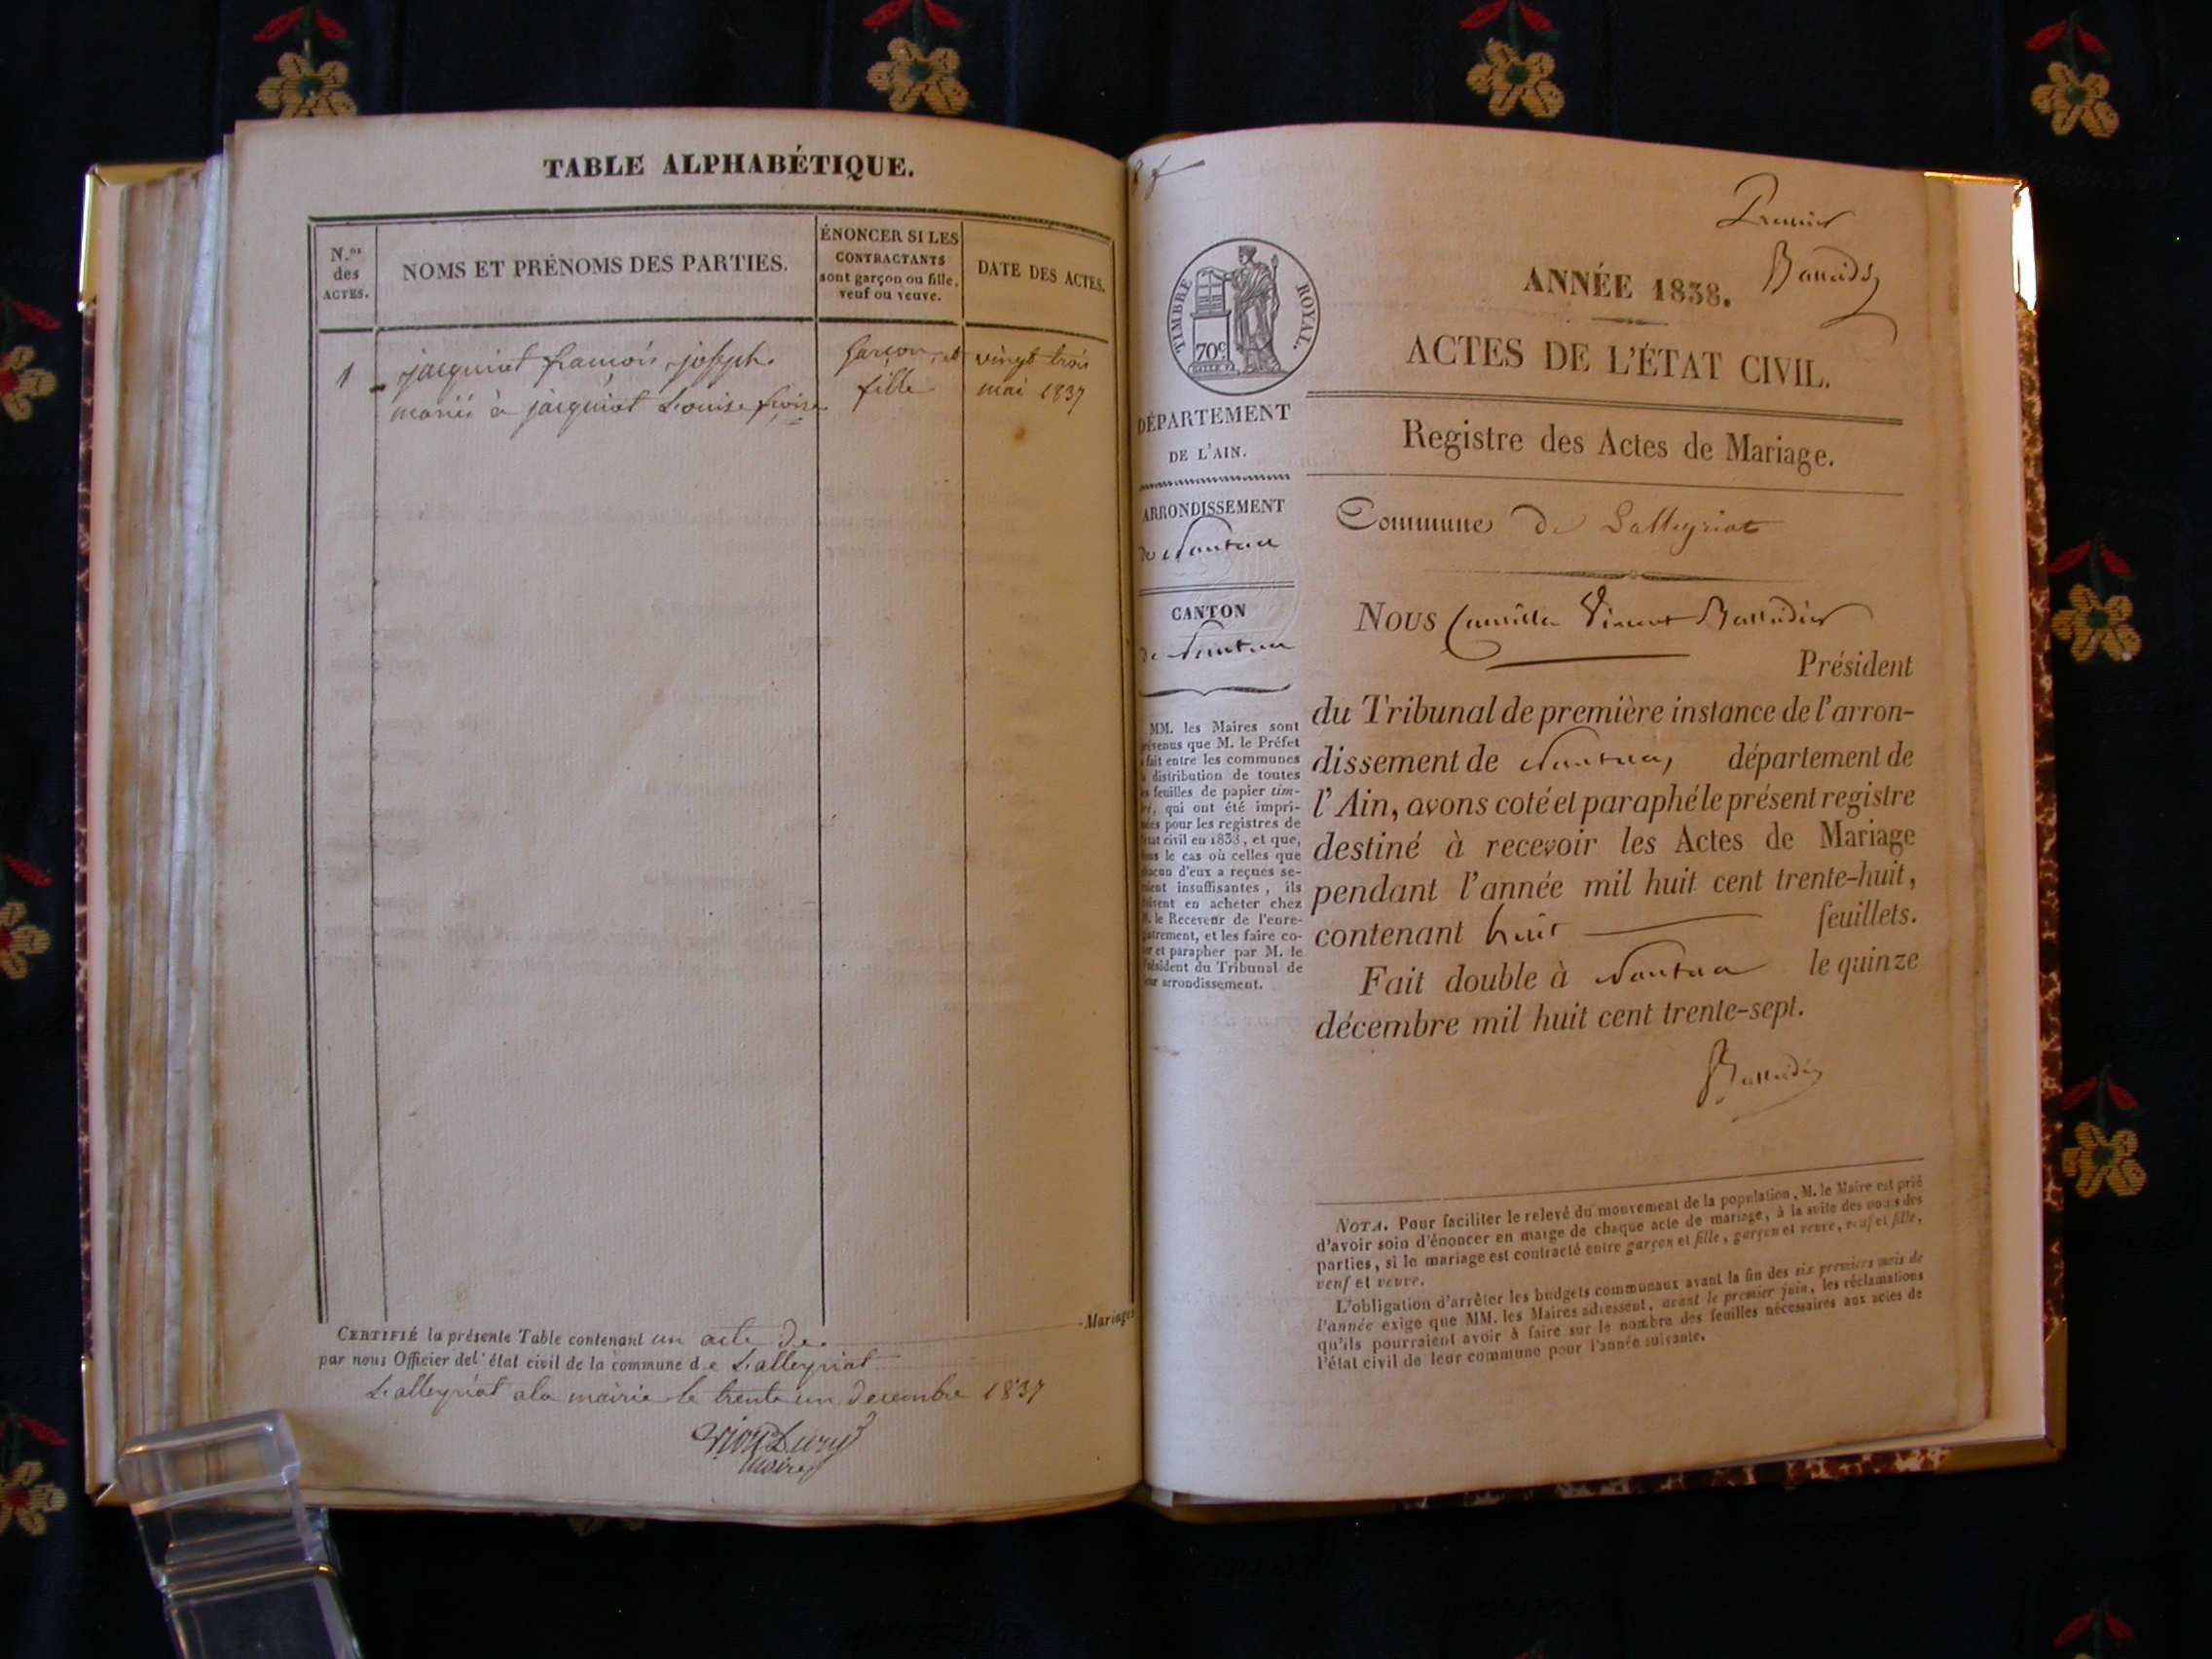 TABLE ALPHABÉTIQUE.
N.os des ACTES.
NOMS ET PRÉNOMS DES PARTIES.
ÉNONCER SI LES
CONTRACTANTS
sont garçon ou fille,
veuf ou veuve.
DATE DES ACTES.
1
jacquiot françois joseph
mariés à jacquiot Louise
garçon et
fille
vingt trois
mai 1837
CERTIFIÉ la présente Table contenant un acte de Mariages
par nous Officier de l'état civil de la commune de Lalleyriat
Lalleyriat a la mairie le trente un decembre 1837
maire
TIMBRE ROYAL.
70c
DÉPARTEMENT
DE L'AIN.
ARRONDISSEMENT
de Nantua
CANTON
de Nantua
MM. les Maires sont
prévenus que M. le Préfet
a fait entre les communes
la distribution de toutes
les feuilles de papier tim-
bré, qui ont été impri-
mées pour les registres de
l'état civil en 1838, et que,
dans le cas où celles que
chacun d'eux a reçues se-
raient insuffisantes, ils
doivent en acheter chez
M. le Receveur de l'enre-
gistrement, et les faire co-
ter et parapher par M. le
Président du Tribunal de
leur arrondissement.
Premier
ANNÉE 1838.
ACTES DE L'ÉTAT CIVIL.
Registre des Actes de Mariage.
Commune de Lalleyriat
Nous Camille Vincent
Président
du Tribunal de première instance de l'arron-
dissement de Nantua, département de
l'Ain, avons coté et paraphé le présent registre
destiné à recevoir les Actes de Mariage
pendant l'année mil huit cent trente-huit,
contenant huit feuillets.
Fait double à Nantua le quinze
décembre mil huit cent trente-sept.
NOTA. Pour faciliter le relevé du mouvement de la population, M. le Maire est prié
d'avoir soin d'énoncer en marge de chaque acte de mariage, à la suite des noms des
parties, si le mariage est contracté entre garçon et fille, garçon et veuve, veuf et fille,
veuf et veuve.
L'obligation d'arrêter les budgets communaux avant la fin des six premiers mois de
l'année exige que MM. les Maires adressent, avant le premier juin, les réclamations
qu'ils pourraient avoir à faire sur le nombre des feuilles nécessaires aux actes de
l'état civil de leur commune pour l'année suivante.